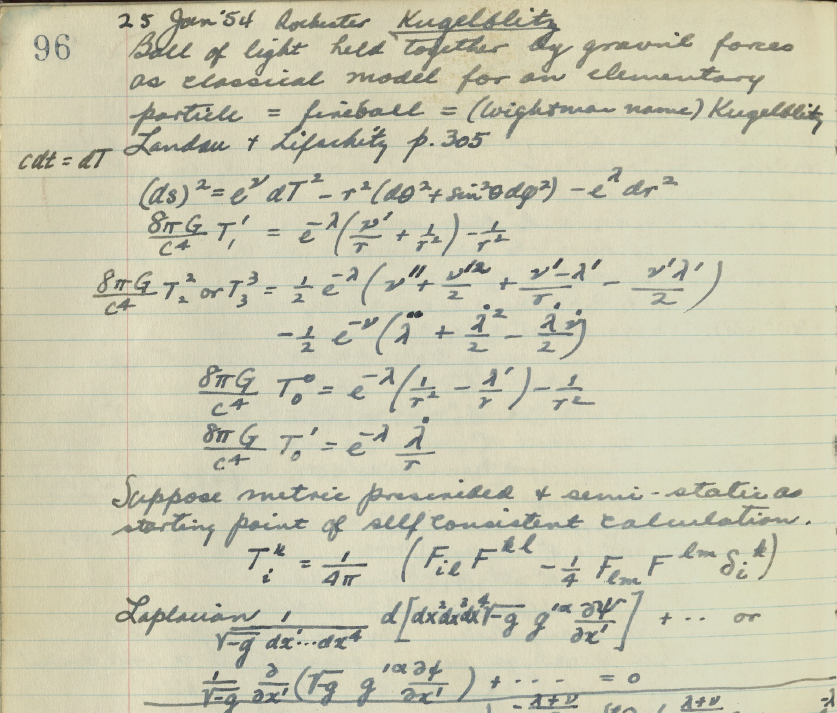 96
25 Jan '54 Rochester Kugelblitz
Ball of light held together by gravit'l forces
as classical model for an elementary
particle = fireball = (Wightman name) Kugelblitz
Landau + Lifschitz p. 305
cdt = dT
(ds)² = e^ν dT² - r²(dθ² + sin²θ dφ²) - e^λ dr²
8πG/c⁴ T₁¹ = e^-λ (ν'/r + 1/r²) - 1/r²
8πG/c⁴ T₂² or T₃³ = 1/2 e^-λ (ν'' + ν'²/2 + (ν'-λ')/r - ν'λ'/2)
- 1/2 e^-ν (λ̈ + λ̇²/2 - λ̇ν̇/2)
8πG/c⁴ T₀⁰ = e^-λ (1/r² - λ'/r) - 1/r²
8πG/c⁴ T₀¹ = e^-λ λ̇/r
Suppose metric prescribed + semi-static as
starting point of self consistent calculation.
T_i^k = 1/4π (F_il F^kl - 1/4 F_lm F^lm δ_i^k)
Laplacian 1/(√-g dx¹...dx⁴) d[dx²dx³dx⁴ √-g g^1α ∂ψ/∂x¹] + ... or
1/√-g ∂/∂x¹ (√-g g^1α ∂ψ/∂x¹) + .... = 0